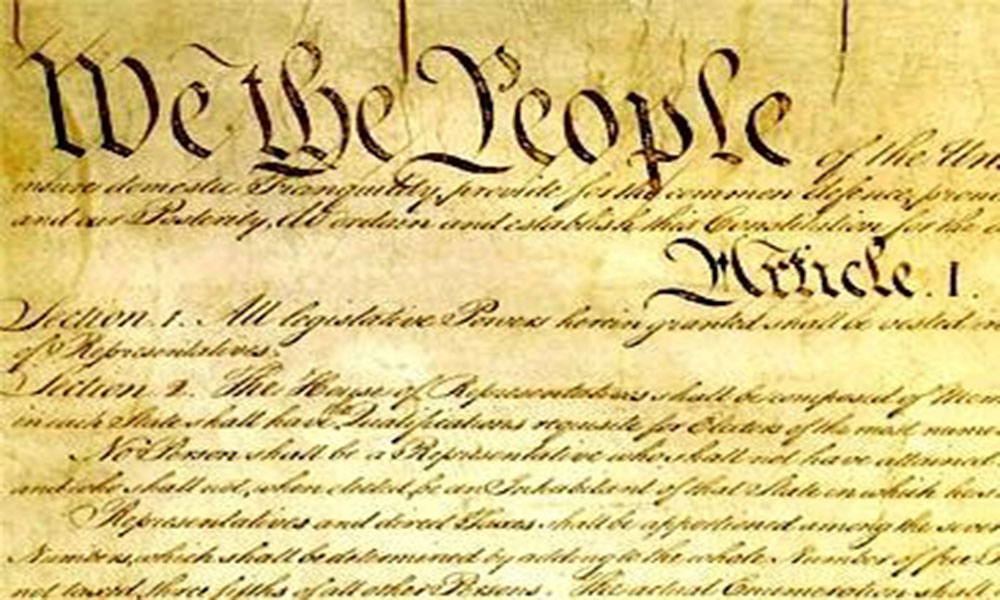 We the People of the Un
insure domestic Tranquility, provide for the common defence, prom
and our Posterity, do ordain and establish this Constitution for the
Article. I.
Section. 1. All legislative Powers herein granted shall be vested in
of Representatives.
Section. 2. The House of Representatives shall be composed of Mem
in each State shall have the Qualifications requisite for Electors of the most nume
No Person shall be a Representative who shall not have attained
and who shall not, when elected, be an Inhabitant of that State in which he
Representatives and direct Taxes shall be apportioned among the sever
Numbers, which shall be determined by adding to the whole Number of free
not taxed, three fifths of all other Persons. The actual Enumeration shall